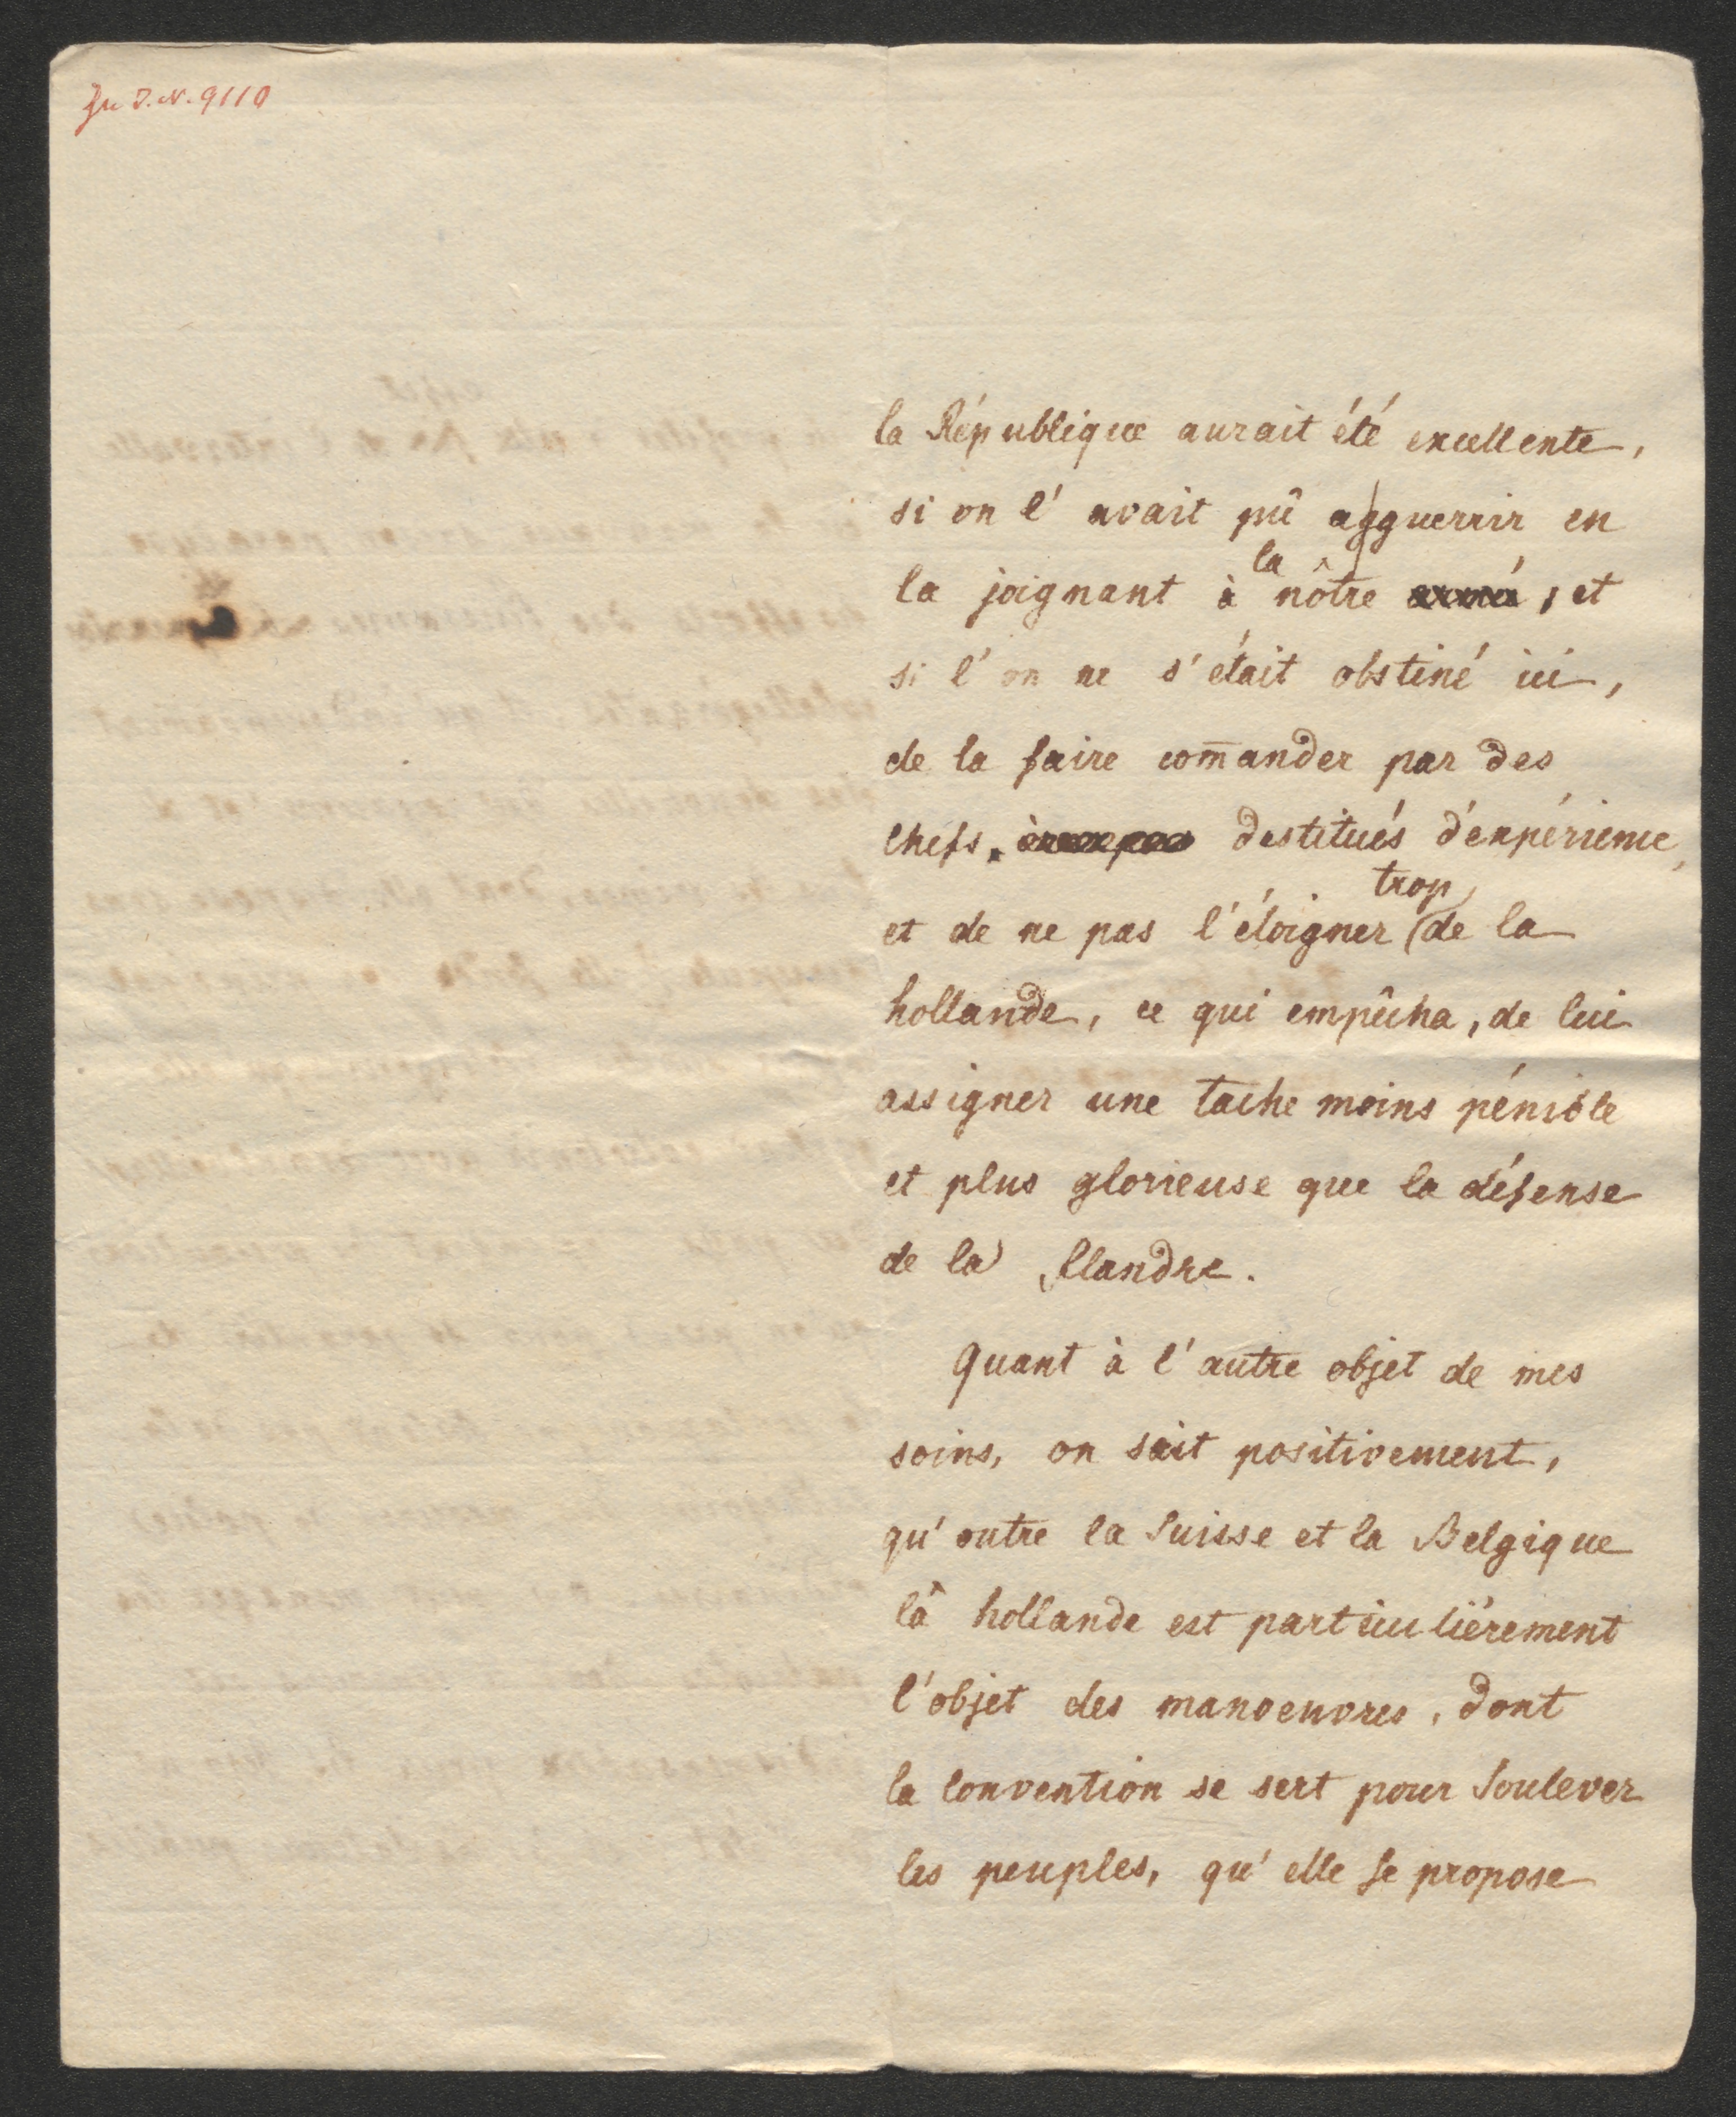 Zu I.N. 9110
la République aurait été excellente,
si on l'avait pû agguerrir en
la joignant à la nôtre armée, et
si l'on ne s'était obstiné ici,
de la faire com̄ander par des
chefs, destitués d'expérience,
et de ne pas l'éloigner trop de la
hollande, ce qui empêcha, de lui
assigner une tache moins pénible
et plus glorieuse que la défense
de la flandre.
Quant à l'autre objet de mes
soins, on sait positivement,
qu'outre la Suisse et la Belgique
la hollande est particuliérement
l'objet des manoeuvres, dont
la Convention se sert pour Soulever
les peuples, qu'elle se propose